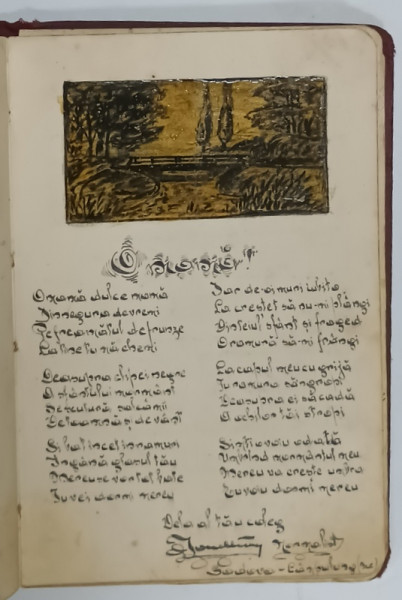 O mamă dulce mamă
Din negura de vremi
Pe freamătul de frunze
La tine tu mă chemi
Deasupra chipei negre
O sfântului mormânt
Se scutură salcâmii
De toamnă și de vânt
Și bat incet in ramuri
Ingână glasul tău
Mereu se vor tot bate
Tu vei dormi mereu
Iar de-oi muri iubito
La creștet să nu-mi plângi
Din teiul sfânt și fraged
O ramură să-mi frângi
La capul meu cu grijă
Tu ramura s'ngropi
Deasupra ei să cadă
O ochilor tăi stropi
Simți-o voiu odată
Umbrind mormântul meu
Mereu va crește umbra
Eu voiu dormi mereu
Dela al tău coleg